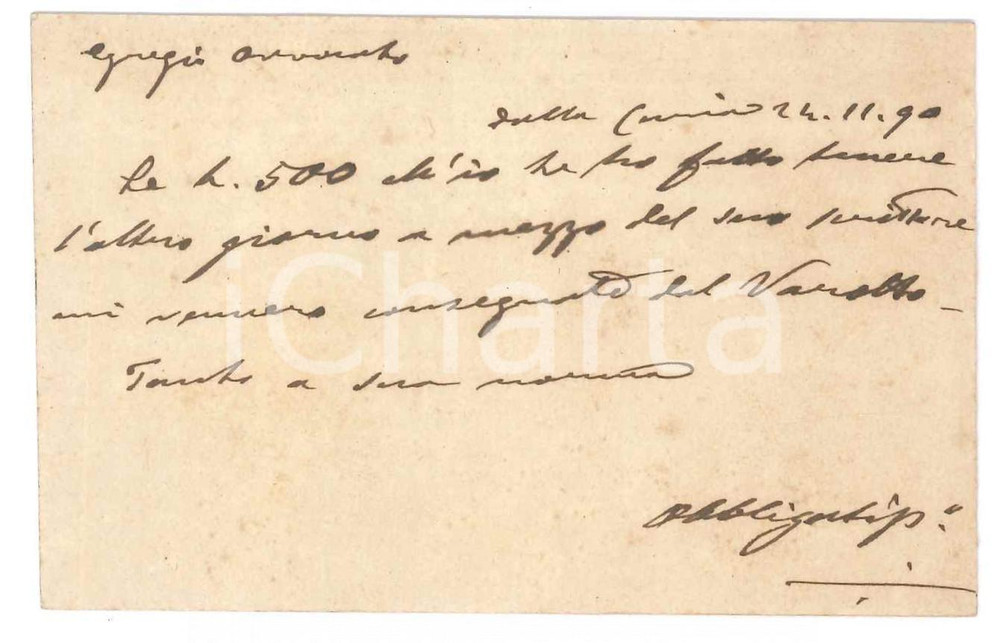 Egregio Avvocato
dalla Curia 24.11.90
Le L. 500 ch'io le ho fatto tenere
l'altro giorno a mezzo del suo scrittore
mi vennero consegnate dal Varotto -
Tanto a sua norma
Obbligatiss.º
iCharta